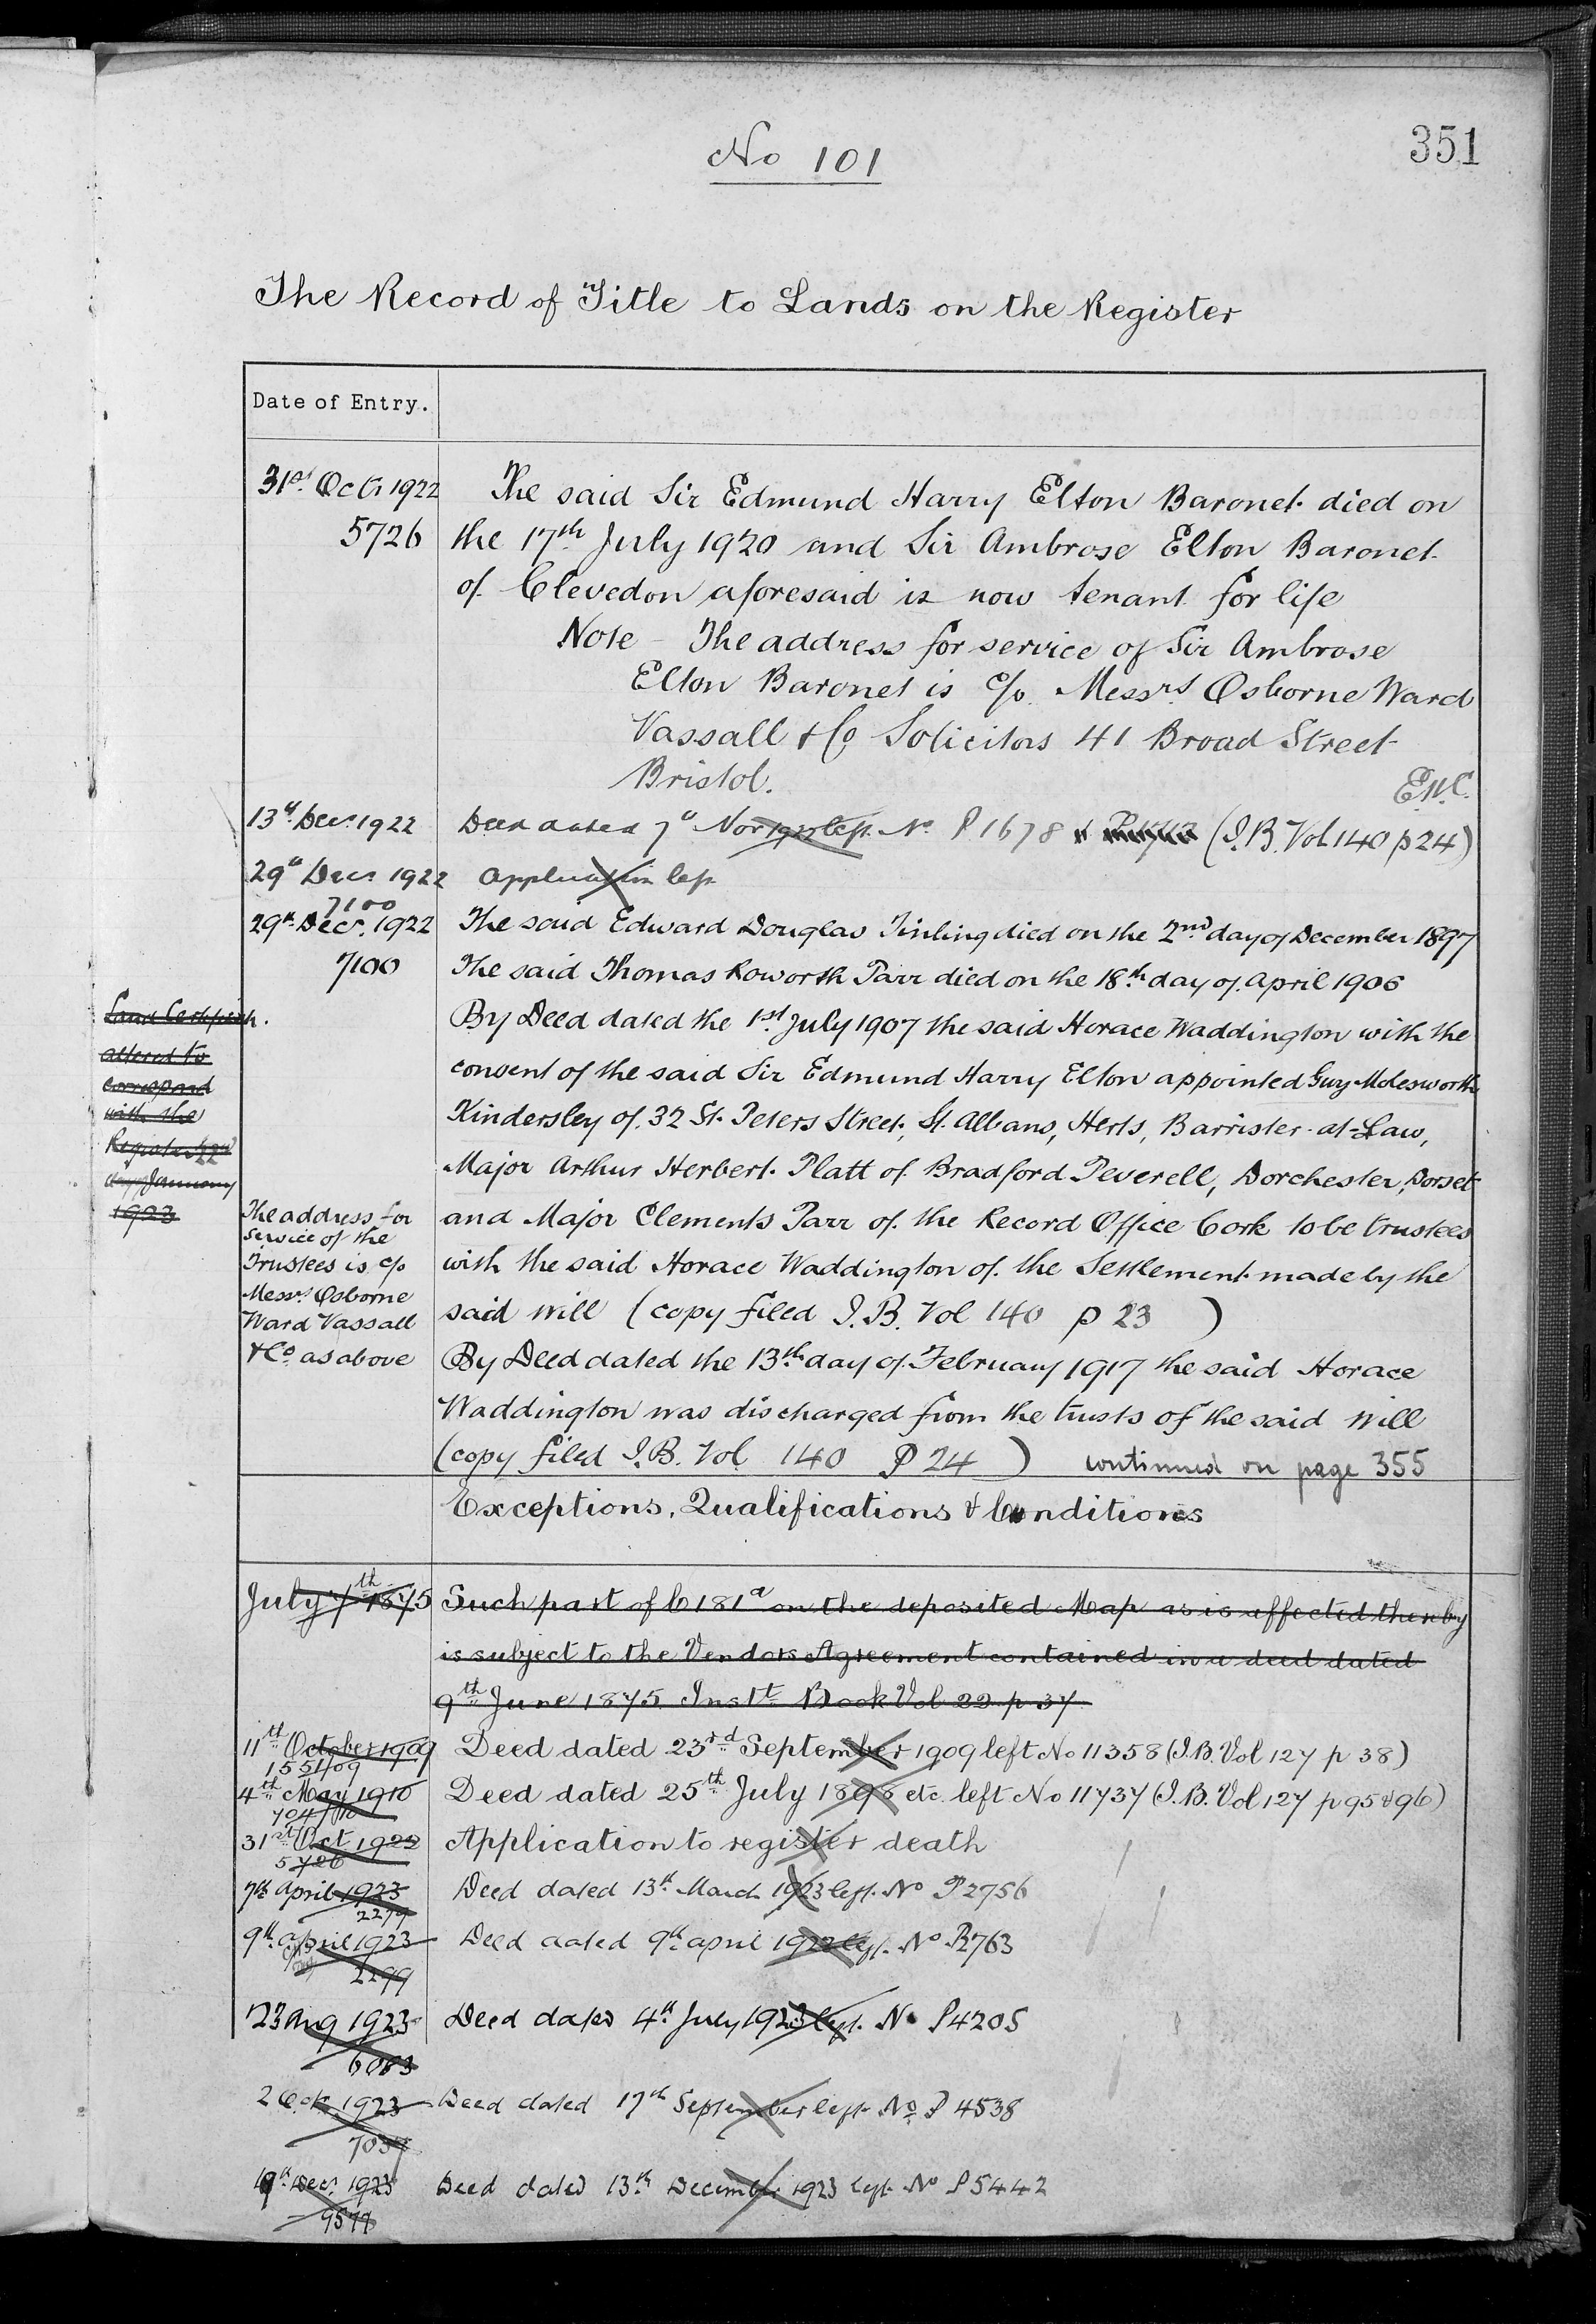 351
No 101
The Record of Title to Lands on the Register
Date of Entry.
31st Octr 1922
5726
The said Sir Edmund Harry Elton Baronet died on
the 17th July 1920 and Sir Ambrose Elton Baronet
of Clevedon aforesaid is now tenant for life
Note - The address for service of Sir Ambrose
Elton Baronet is c/o Messrs Osborne Ward
Vassall & Co Solicitors 41 Broad Street
Bristol.
13th Decr 1922 Deed dated 7th Nov 1922 left No P1678 (I.B. Vol 140 p 24)
29th Decr 1922 Application left
7100
29th Decr. 1922 The said Edward Douglas Tinling died on the 2nd day of December 1897
7100 The said Thomas Roworth Parr died on the 18th day of April 1906
By Deed dated the 1st July 1907 the said Horace Waddington with the
consent of the said Sir Edmund Harry Elton appointed Guy Molesworth
Kindersley of 32 St. Peters Street, St. Albans, Herts, Barrister-at-Law,
Major Arthur Herbert Platt of Bradford Peverell, Dorchester, Dorset
and Major Clements Parr of the Record Office Cork to be trustees
with the said Horace Waddington of the Settlement made by the
said will (copy filed I.B. Vol 140 p 23 )
By Deed dated the 13th day of February 1917 the said Horace
Waddington was discharged from the trusts of the said will
(copy filed I.B. Vol 140 P 24 ) continued on page 355
Land Certificate
altered to
correspond
with the
Register 22nd
day January
1923
The address for
service of the
Trustees is c/o
Messrs Osborne
Ward Vassall
& Co. as above
Exceptions, Qualifications & Conditions
July 7th 1875 Such part of C 181a on the deposited Map as is affected thereby
is subject to the Vendors Agreement contained in a deed dated
9th June 1875 Instt Book Vol 22 p 37
11th October 1909 Deed dated 23rd September 1909 left No 11358 (I.B. Vol 127 p 38)
4th May 1910 Deed dated 25th July 1898 etc. left No 11737 (I.B. Vol 127 p 95 & 96)
704/10
31st Oct 1922 Application to register death
5726
7th April 1923 Deed dated 13th March 1923 left No P2756
2279
9th April 1923 Deed dated 9th April 1923 left No P2763
2299
23 Aug 1923 Deed dated 4th July 1923 left No P4205
6063
2 Oct 1923 Deed dated 17th September left No P 4538
19th Decr 1923 Deed dated 13th December 1923 left No P5442
9577